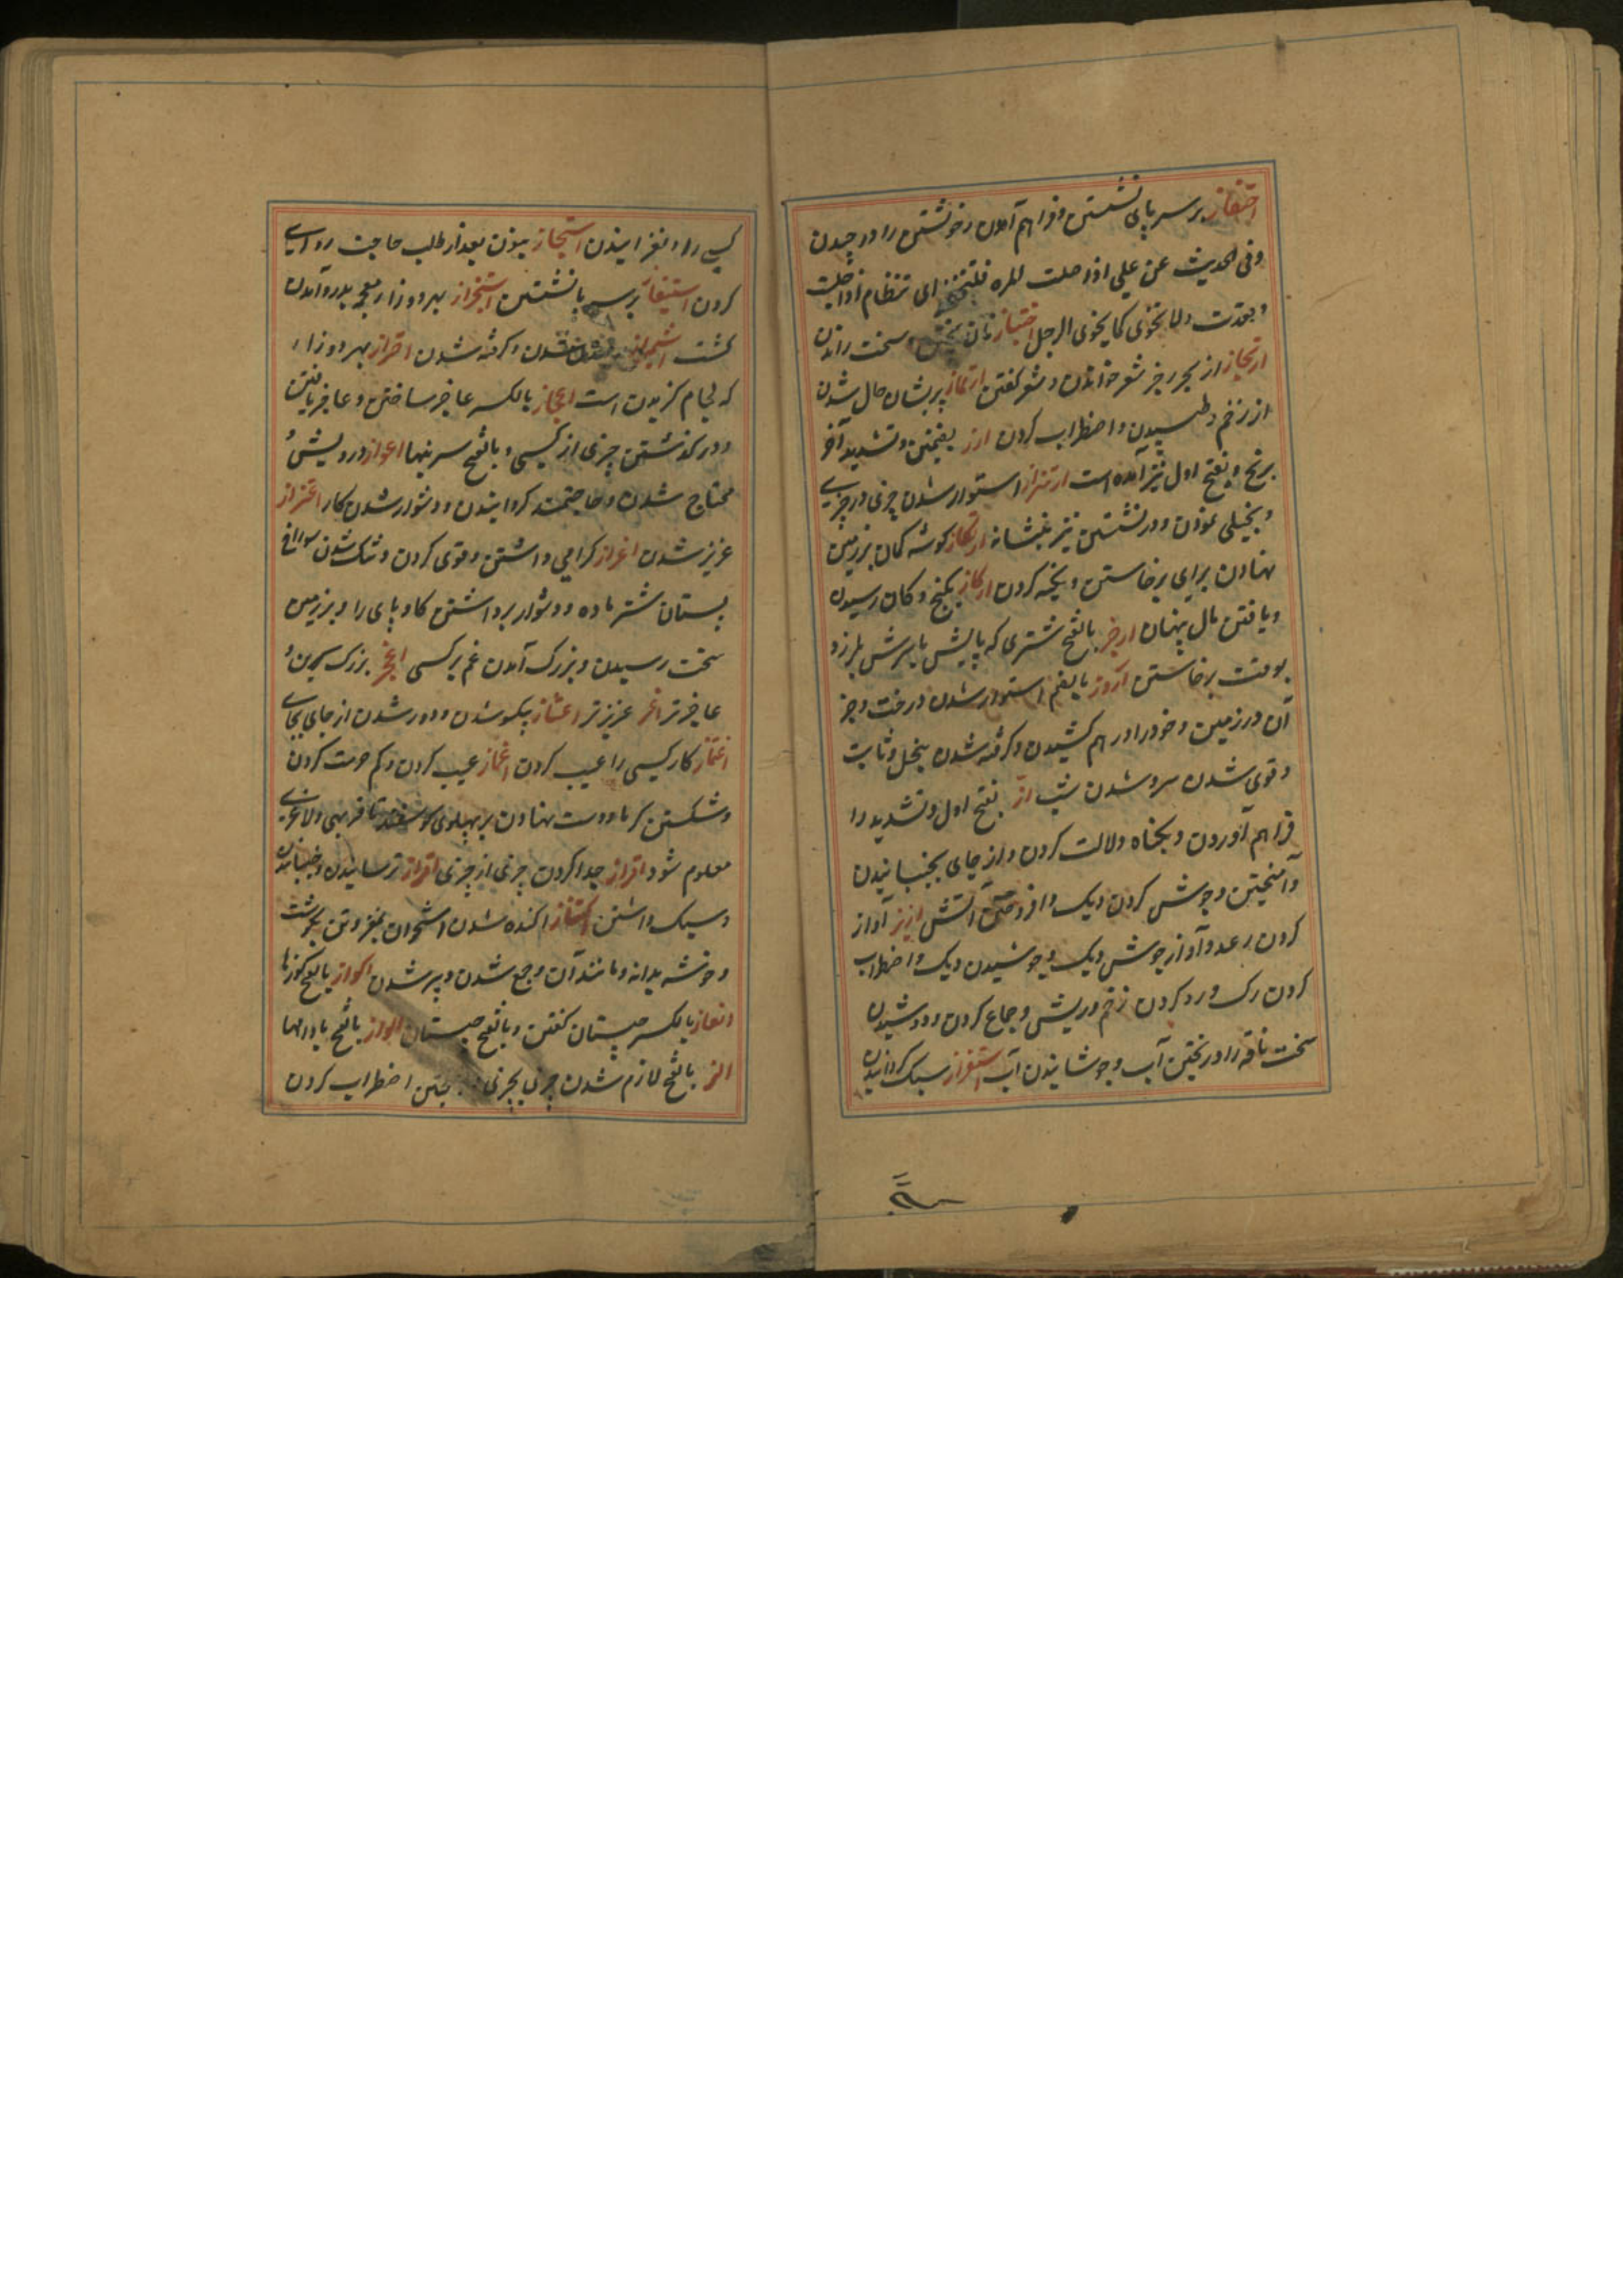 احتفاز بر سر پای نشستن و فراهم آمدن و خویشتن را در چیدن
وفی الحدیث عن علی اذا صلت المراه فلتحتفز ای تتضام اذا جلست
ولا تخوی کما یخوی الرجل اختباز نان پختن و سخت راندن
ارتجاز از بحر رجز شعر خواندن و شعر گفتن ارتماز پریشان حال شدن
از زخم و طپیدن و اضطراب کردن ارز بضمتین و تشدید آخر
برنج و بفتح اول نیز آمده است ارتزاز استوار شدن چیزی در چیزی
و بخیلی نمودن و در نشستن تیر بنشانه ارتکاز گوشه کمان بر زمین
نهادن برای برخاستن و تکیه کردن ارکاز بگنج و کان رسیدن
و یافتن مال پنهان ارجز بالفتح شتری که پایش یا سرش بلرزد
بوقت برخاستن اروز بالضم استوار شدن درخت و جز
آن در زمین و خود را در هم کشیدن و گرفته شدن ببخل و ثابت
و قوی شدن سرد شدن شب از بفتح اول و تشدید را
فراهم آوردن و بگناه دلالت کردن و از جای بجنبانیدن
و آمیختن و جوش کردن دیک و افروختن آتش ازیز آواز
کردن رعد و آواز جوش دیک و جوشیدن دیک و اضطراب
کردن رک و درد کردن زخم و ریش و جماع کردن و دوشیدن
سخت ناقه را و ریختن آب و جوشانیدن آب استفزاز سبک گردانیدن
کسی را و لغزانیدن استنجاز بنون بعد از طلب حاجت روایی
کردن استیفاز بر سر پا نشستن
گشت اشمیزاز و گرفته شدن اضزاز بهر دو زا
که لجام گزیدن است اعجاز بالکسر عاجز ساختن و عاجز یافتن
و در گذشتن چیزی از کسی و بالفتح سرینها اعواز درویش و
محتاج شدن و حاجتمند گردانیدن و دشوار شدن کار اعتزاز
عزیز شدن اعزاز گرامی داشتن و قوی کردن و تنک شدن سوراخ
پستان شتر ماده و دشوار برداشتن گاو پای را و بر زمین
سخت رسیدن و بزرگ آمدن غم بر کسی اعجز بزرگ سرین و
عاجزتر اعز عزیزتر اعتناز یکسو شدن و دور شدن از جای بجای
اغتماز کار کسی را عیب کردن اغماز عیب کردن و کم حرمت کردن
و شکستن گرما و دست نهادن بر پهلوی گوسفند تا فربهی و لاغری
معلوم شود افراز جدا کردن چیزی از چیزی افزاز ترسانیدن و جنبانیدن
و سبک داشتن اکتناز اکنده شدن استخوان بمغز و تن بگوشت
و خوشه بدانه و مانند آن و جمع شدن و پر شدن اکواز بالفتح کوزها
الغاز بالکسر چیستان گفتن و بالفتح چیستان الواز بالفتح بادامها
الز بالفتح لازم شدن چیزی بچیزی اضطراب کردن